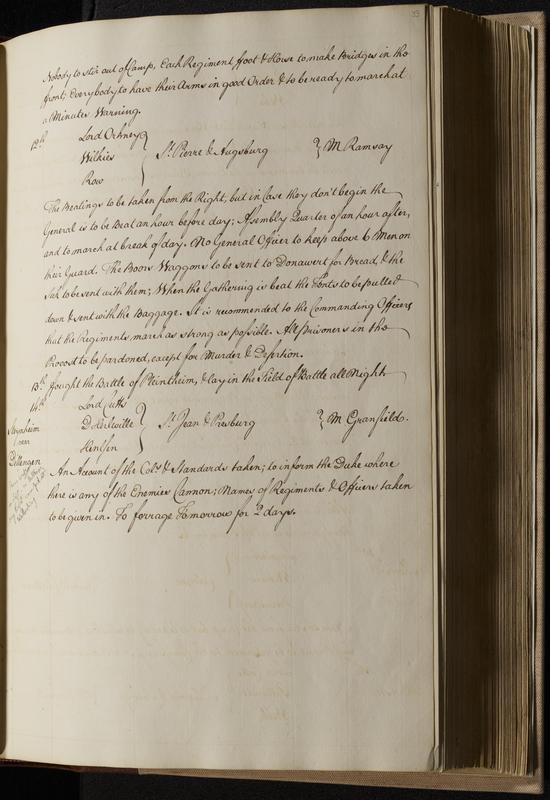 33
Nobody to stir out of Camp, Each Regiment ffoot & Horse to make Bridges in the
ffront; Everybody to have their Arms in good Order & to be ready to march at
a Minutes Warning.
12th Lord Orkney
Wilkies } St. Pierre & Augsburg } M Ramsay
Row
The Beatings to be taken from the Right, but in Case they don't begin the
General is to be Beat an hour before day; Assembly Quarter of an hour after,
and to march at break of day. No General Officer to keep above 6 Men on
their Guard. The Boors Waggons to be sent to Donawert for Bread, & the
to be sent with them; When the Gathering is beat the Tents to be pulled
down & sent with the Baggage. It is recommended to the Commanding Officers
that the Regiments march as strong as possible. All prisoners in the
Provost to be pardoned, except for Murder & Desertion.
13th fought the Battle of Pleintheim, & lay in the Field of Battle all Night
14th Lord Cutts
D'Herleville } St. Jean & Presburg } M Granfield.
Hensen
Steinheim
near
Dillengen
An Account of the Cols. & Standards taken; to inform the Duke where
there is any of the Enemies Cannon; Names of Regiments & Officers taken
to be given in. To forrage Tomorrow for 2 days.